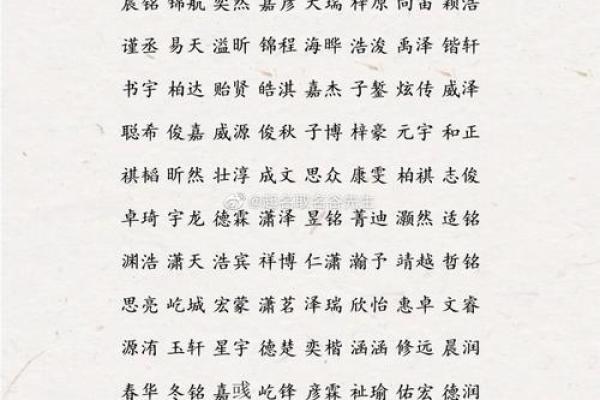 晨铭 锦航 奕然 嘉彦 天瑞 梓原 向笛 颖浩
谨丞 易天 溢昕 锦程 海晔 浩浚 禹泽 锴轩
书宇 柏达 贻贤 皓淇 嘉杰 子鏊 炫传 威泽
聪希 俊嘉 威源 俊秋 子博 梓豪 元宇 和正
祺韬 昕然 壮淳 成文 思众 康雯 柏祺 志俊
卓琦 宇龙 德霖 潇泽 昱铭 菁迪 灏然 适铭
渊浩 潇天 浩宾 祥博 仁潇 瀚予 靖越 哲铭
思亮 屹城 宏蒙 潇茗 泽瑞 欣怡 惠卓 文睿
源洧 玉轩 星宇 德楚 奕楷 涵涵 修远 晨润
春华 冬铭 嘉彧 屹锋 彦霖 祉瑜 佑宏 德润